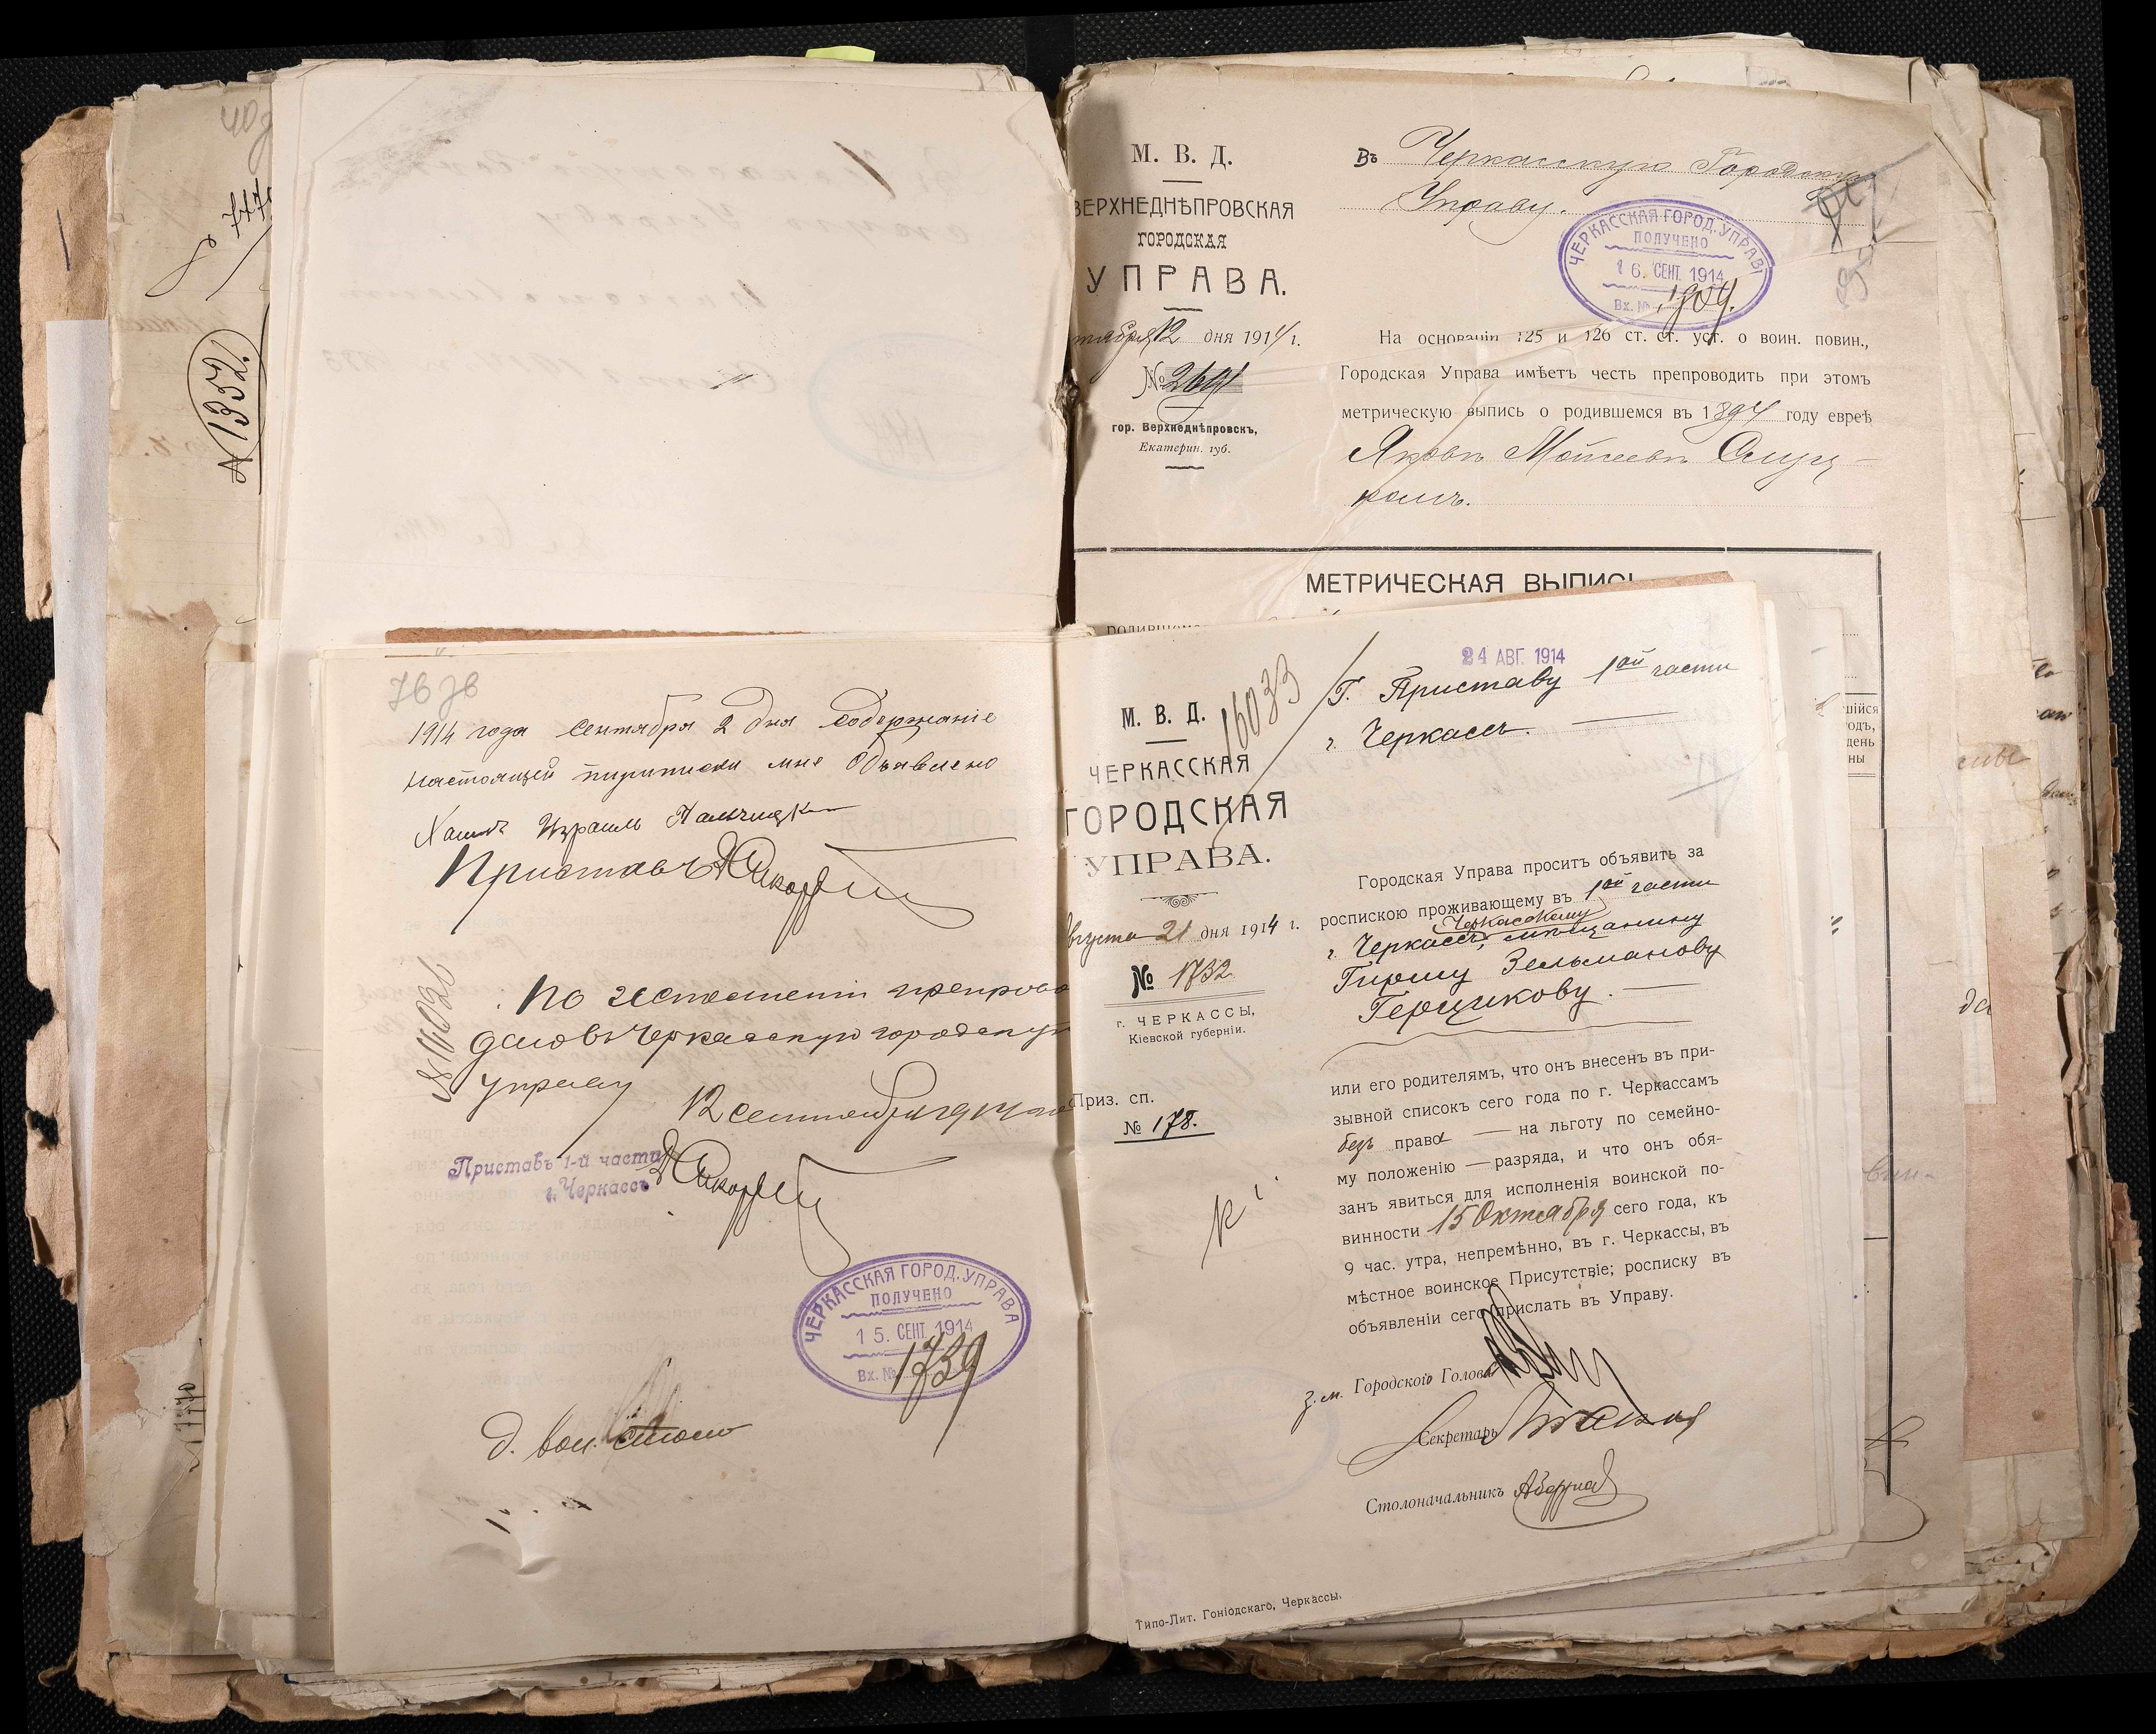 1914 года Сентября 2 дня Содержаніе
настоящей мне Объявлено
Израиль
Приставъ
препрово
въ Черкасскую городскую
управу
12 сентября 1914
Приставъ 1-й части
г. Черкассъ
ЧЕРКАССКАЯ ГОРОД. УПРАВА
ПОЛУЧЕНО
15. СЕНТ. 1914
Вх. № 1739
№ 1352
М. В. Д.
ВЕРХНЕДНѢПРОВСКАЯ
ГОРОДСКАЯ
УПРАВА.
тября 12 дня 1914 г.
№ 2691
гор. Верхнеднѣпровскъ,
Екатерин. губ.
Въ Черкасскую Городскую
Управу.
ЧЕРКАССКАЯ ГОРОД. УПРАВ
ПОЛУЧЕНО
16. СЕНТ. 1914
Вх. № 1904.
На основаніи 125 и 126 ст. ст. уст. о воин. повин.,
Городская Управа имѣетъ честь препроводить при этомъ
метрическую выпись о родившемся въ 1894 году евреѣ
Яковъ Мойсеевъ Слуц-
комъ.
МЕТРИЧЕСКАЯ ВЫПИСЬ
шійся
годъ,
день
ны
24 АВГ. 1914
16033
М. В. Д.
ЧЕРКАССКАЯ
ГОРОДСКАЯ
УПРАВА.
вгуста 21 дня 1914 г.
№ 1732
г. ЧЕРКАССЫ,
Кіевской губерніи.
Приз. сп.
№ 178.
Г. Приставу 1ой части
г. Черкассъ.
Городская Управа проситъ объявить за
роспискою проживающему въ 1ой части
Черкасскому
г. Черкассъ, мѣщанину
Гиршу Зельманову
Герщикову.
или его родителямъ, что онъ внесенъ въ при-
зывной списокъ сего года по г. Черкассамъ
безъ права — на льготу по семейно-
му положенію — разряда, и что онъ обя-
занъ явиться для исполненія воинской по-
винности 15 Октября сего года, къ
9 час. утра, непремѣнно, въ г. Черкассы, въ
мѣстное воинское Присутствіе; росписку въ
объявленіи сего прислать въ Управу.
З. м. Городского Головы
Секретарь
Столоначальникъ
Типо-Лит. Гоніодскаго, Черкассы.